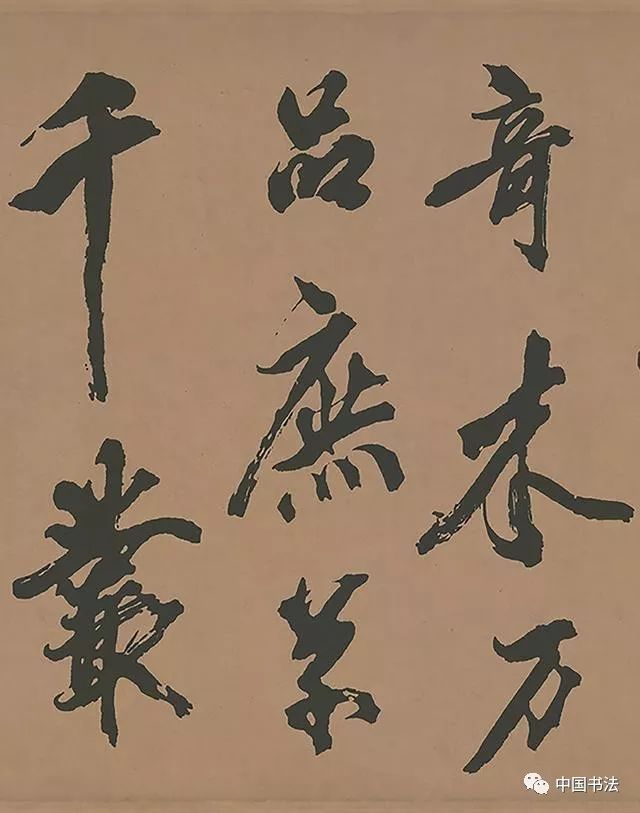 奇木万
品庶草
千叢
中国书法